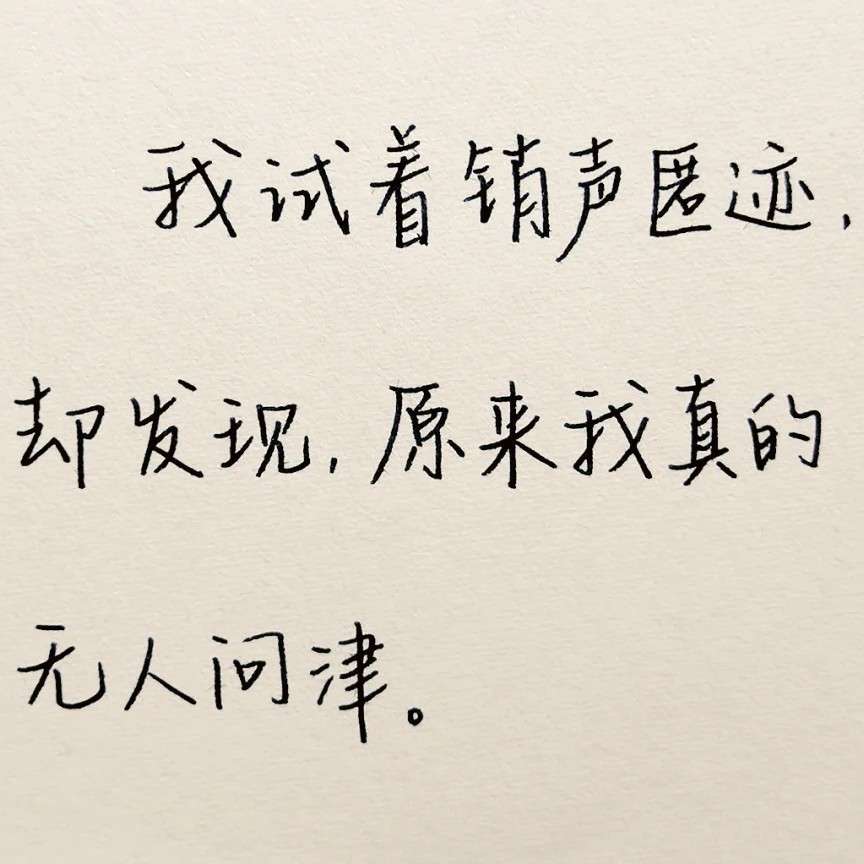 我试着销声匿迹，
却发现，原来我真的
无人问津。